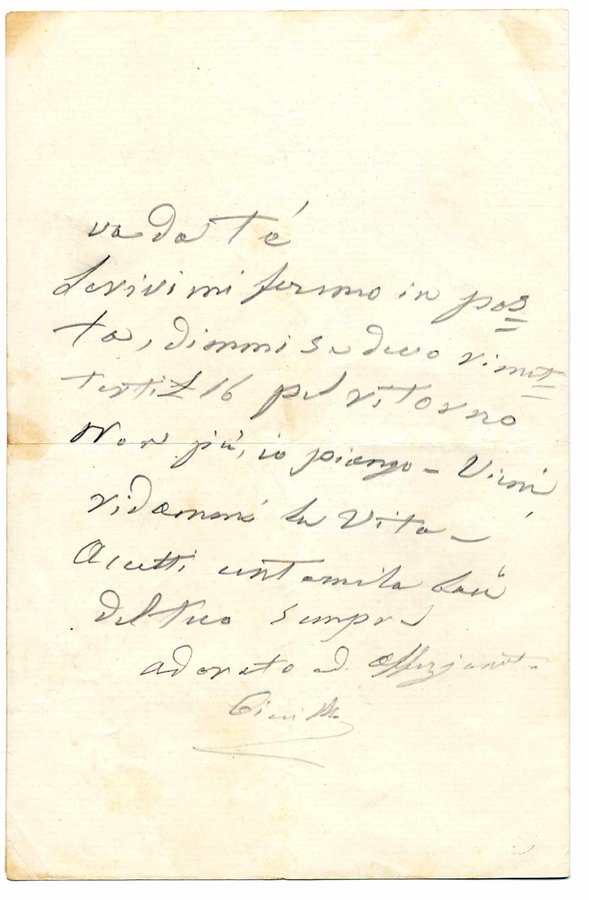 va da té
Scrivimi fermo in pos=
ta, dimmi se devo rimet=
terti £ 16 pel ritorno
Non più, io piango – Vieni
ridammi la Vita –
Accetti centomila baci
del tuo sempre
adorato ed affezionat.